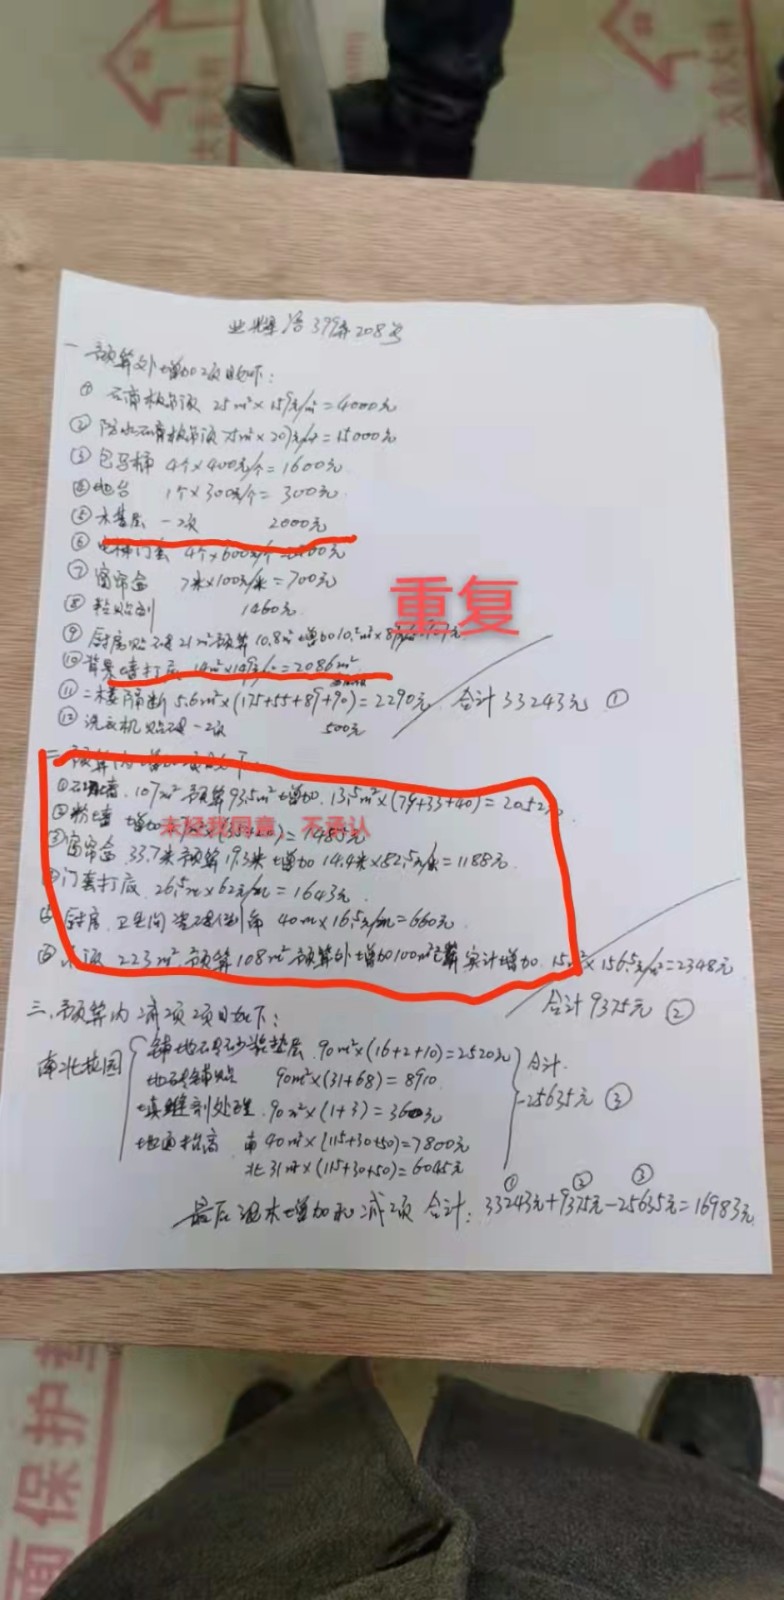 业辉路399弄208号
一 预算外增加项目如下:
① 石膏板吊顶 25m²×159元/m²=4000元
② 防水石膏板吊顶 75m²×207元/m²=15000元
③ 包马桶 4个×400元/个=1600元
④ 地台 1个×300元/个=300元
⑤ 木基层 一项 2000元
⑥ 电梯门套 4个×600元/个
⑦ 窗帘盒 7米×100元/米=700元
重复
⑧ 粘贴剂 1460元
⑨ 厨房贴砖21m²预算10.8m²增加10.2m²
⑩ 背景墙打底 14m²×149元/=2086m²
⑪ 二楼隔断 5.6m²×(175+55+89+90)=2290元 合计33243元 ①
⑫ 洗衣机贴砖一项 500元
二 预算内增加项目如下:
① 107m² 预算93.5m²增加 13.5m²×(79+33+40)=2052元
② 粉墙 增加 =1485元
未经我同意,不承认
③ 窗帘盒 33.7米预算19.3米增加14.4米×82.5元/米=1188元
门套打底 26.5m×62元/m=1643元
厨房、卫生间瓷砖倒角 40m×16.5元/m=660元
⑥ 吊顶 223m²预算108m²预算外增加100m² 实计增加 15m²×156.5元/m²=2348元
合计9375元 ②
三、预算内减项项目如下:
南北校园
铺地砖砂浆垫层 90m²×(16+2+10)=2520元
地砖铺贴 90m²×(31+68)=8910
填缝剂处理 90m²×(1+3)=360元
地面抬高 南40m²×(115+30+50)=7800元
北31m²×(115+30+50)=6045元
合计
-25635元 ③
① ② ③
最后泥木增加和减项 合计:33243元+9375元-25635元=16983元
面保护垫